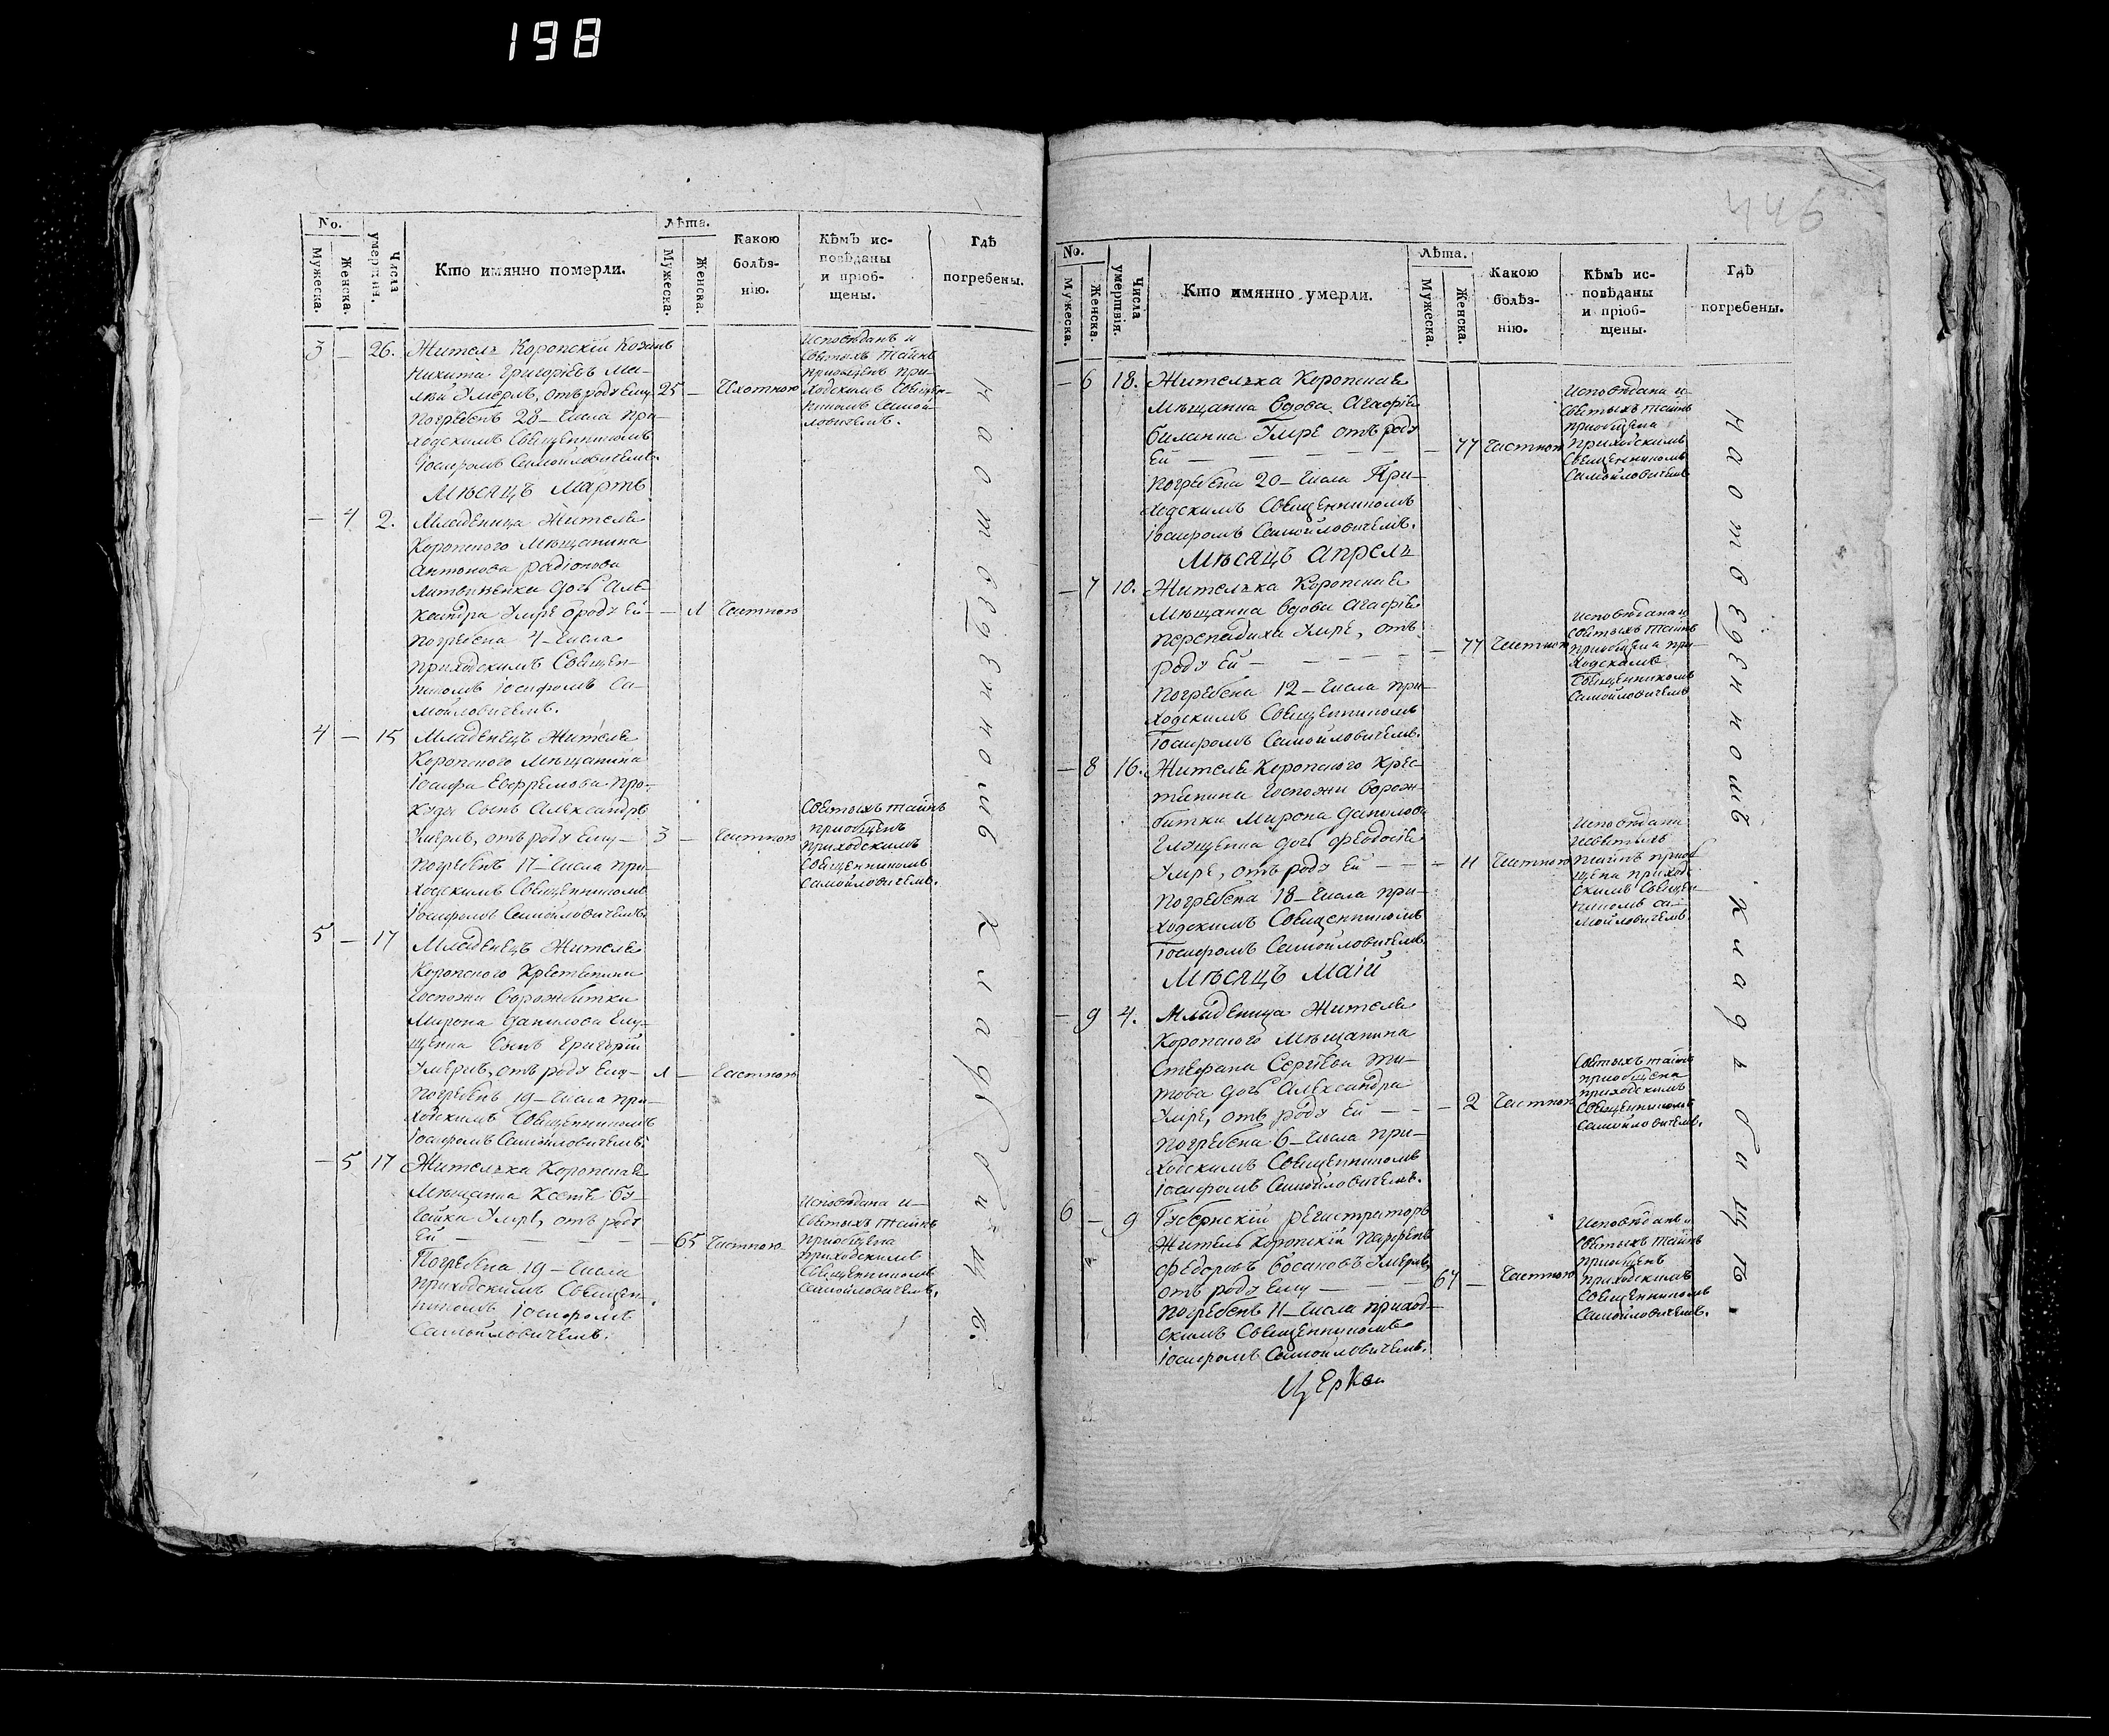 198
No.
Мужеска.
Женска.
Числа умертв.
Кто имянно померли.
Лѣта.
Мужеска.
Женска.
Какою болѣз-
нію.
Кѣмъ ис-
повѣданы
и пріоб-
щены.
Гдѣ
погребены.
3 — 26. Жителъ Коропскій Козакъ
Никита Григоріевъ
Умерлъ, отъ роду ему 25 —
Погребенъ 28 числа при-
ходскимъ Священникомъ
Іосифомъ Самойловичемъ.
Исповѣданъ и
Святыхъ таинъ
приобщенъ при-
ходскимъ Священ-
никомъ Самой-
ловичемъ.
Мѣсяцъ Мартъ
— 4 2. Младеница Жителя
Коропского Мѣщанина
Антонова Радіонова
Литвиненка дочь Але-
ксандра Умре ѿроду ей — 1 Чистною
Погребена 4 числа
приходскимъ Священ-
никомъ Іосифомъ Са-
мойловичемъ.
4 — 15 Младенецъ Жителя
Коропского Мѣщанина
Іосифа Евфремова Про-
сынъ Александръ
Умерлъ, отъ роду ему — 3 — Чистною
Погребенъ 17 числа при-
ходскимъ Священникомъ
Іосифомъ Самойловичемъ
Святыхъ таинъ
приобщенъ
приходскимъ
Священникомъ
Самойловичемъ.
5 — 17 Младенецъ Жителя
Коропского Крестянина
Госпожи Ворожбитки
Мирона Данилова Глу-
щенка сынъ Григорій
Умерлъ, отъ роду ему — 1 — Чистною
Погребенъ 19 числа при-
ходскимъ Священникомъ
Іосифомъ Самойловичемъ
— 5 17 Жителька Коропская
Мѣщанка
Умре, отъ роду
ей — 65 Чистною
Погребена 19 числа
приходскимъ Священ-
никомъ Іосифомъ
Самойловичемъ.
Исповѣдана и
Святыхъ таинъ
приобщена
приходскимъ
Священникомъ
Самойловичемъ.
на отведенномъ кладбищѣ.
446
No.
Мужеска.
Женска.
Числа умертвія.
Кто имянно умерли.
Лѣта.
Мужеска.
Женска.
Какою
болѣз-
нію.
Кѣмъ ис-
повѣданы
и пріоб-
щены.
Гдѣ
погребены.
— 6 18. Жителька Коропская
Мѣщанка вдова Агафія
Умре отъ роду
ей — 77 Чистною
Погребена 20 числа При-
ходскимъ Священникомъ
Іосифомъ Самойловичемъ.
Исповѣдана и
Святыхъ таинъ
приобщена
приходскимъ
Священникомъ
Самойловичемъ
Мѣсяцъ Апрель
— 7 10. Жителька Коропская
Мѣщанка вдова Агафія
Умре, отъ
роду ей — 77 Чистною
Погребена 12 числа при-
ходскимъ Священникомъ
Іосифомъ Самойловичемъ.
Исповѣдана и
Святыхъ таинъ
приобщена при-
ходскимъ
Священникомъ
Самойловичемъ
— 8 16. Жителя Коропского Крес-
тянина Госпожи Ворож-
битки Мирона Данилова
Глущенка дочь Феодосія
Умре, отъ роду ей — 11 Чистною
Погребена 18 числа при-
ходскимъ Священникомъ
Іосифомъ Самойловичемъ
Исповѣдана
и Святыхъ
таинъ приоб
щена приход-
скимъ Священ-
никомъ Са-
мойловичемъ
Мѣсяцъ Маій
— 9 4. Младеница Жителя
Коропского Мѣщанина
Стефана Сергіева
дочь Александра
Умре, отъ роду ей — 2 Чистною
Погребена 6 числа при-
ходскимъ Священникомъ
Іосифомъ Самойловичемъ.
Святыхъ таинъ
приобщена
приходскимъ
Священникомъ
Самойловичемъ.
6 — 9 Губернскій регистраторъ
Житель Коропскій Парфенъ
Федоровъ Умерлъ,
отъ роду ему — 67 — Чистною
Погребенъ 11 числа приход-
скимъ Священникомъ
Іосифомъ Самойловичемъ.
Исповѣданъ и
Святыхъ таинъ
приобщенъ
приходскимъ
Священникомъ
Самойловичемъ.
на отведенномъ кладбищѣ.
Церкви